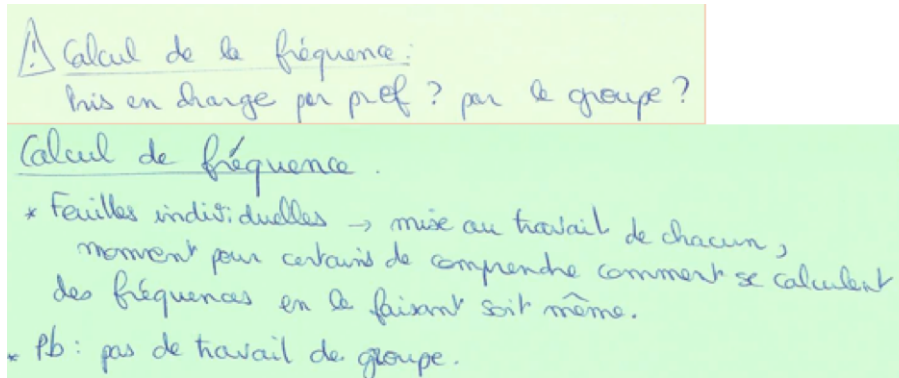 ⚠ Calcul de la fréquence :
Pris en charge par prof ? par le groupe ?
Calcul de fréquence.
* Feuilles individuelles → mise au travail de chacun,
moment pour certains de comprendre comment se calculent
des fréquences en le faisant soit même.
* Pb : pas de travail de groupe.